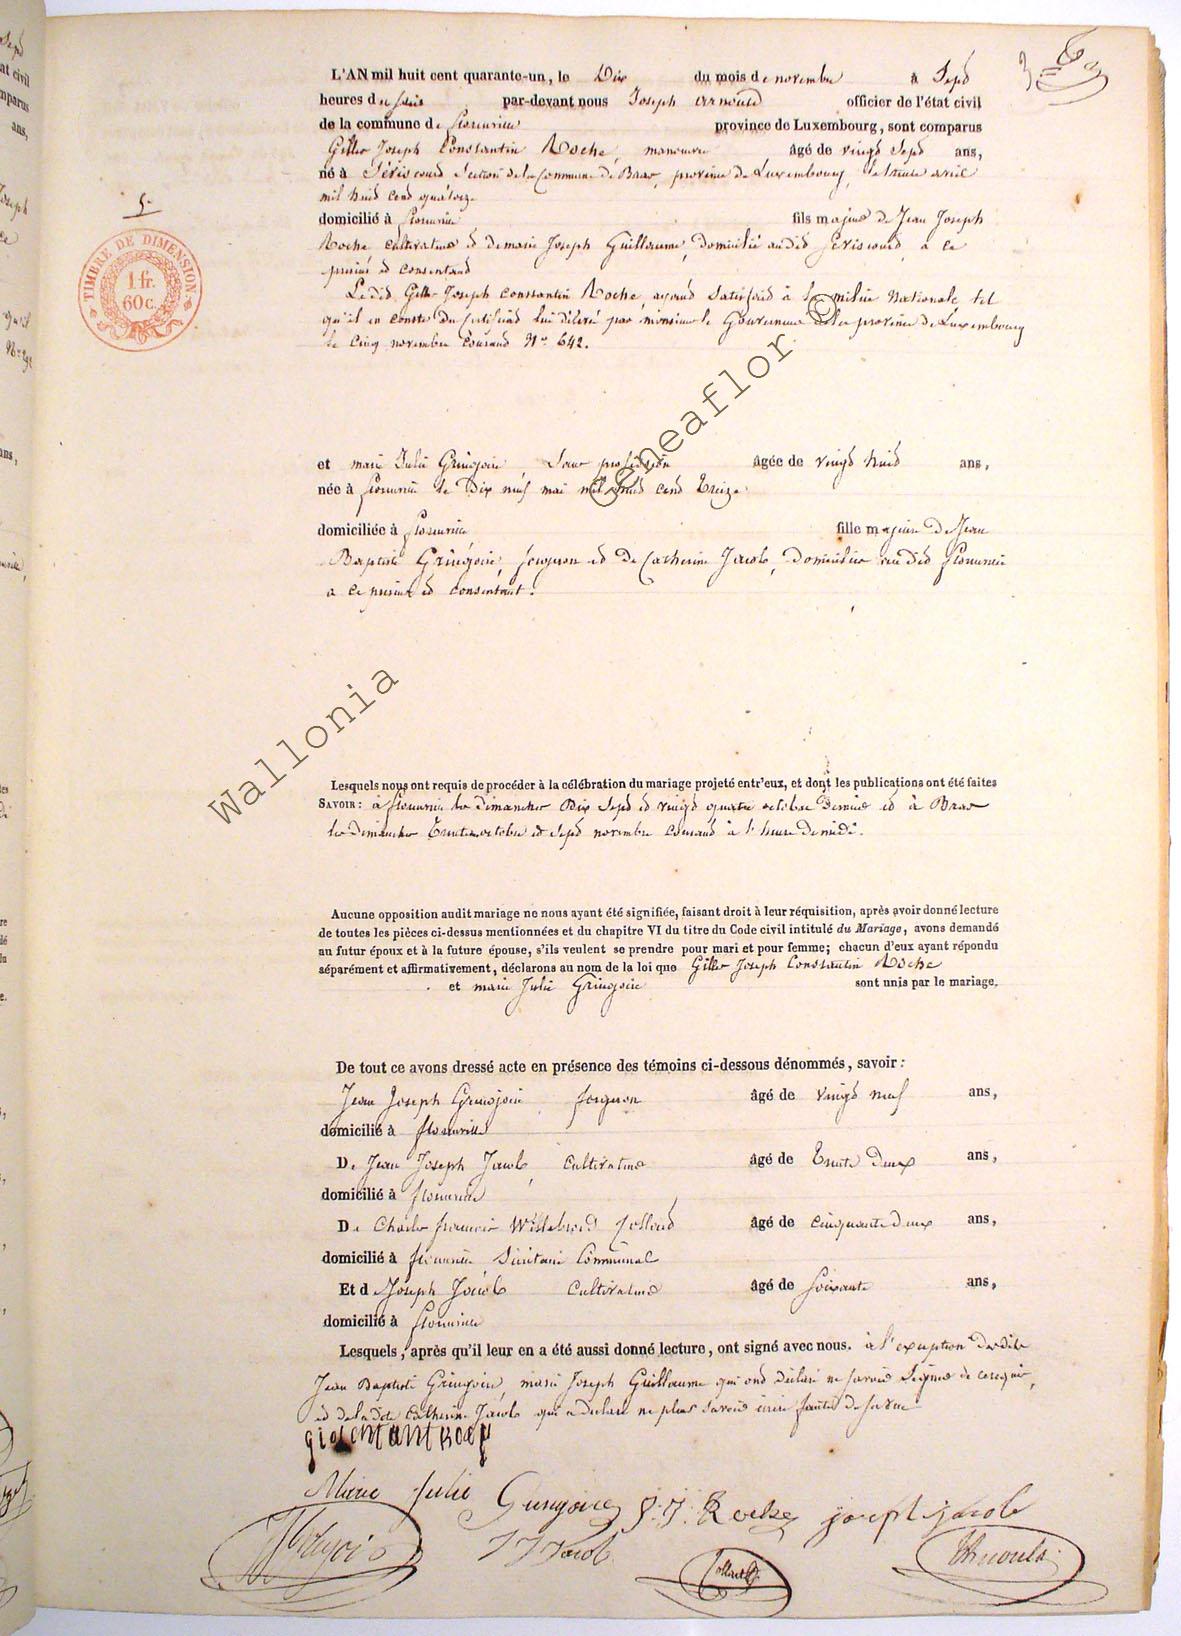 L'AN mil huit cent quarante-un, le Dix du mois de novembre à Sept
heures du soir par-devant nous Joseph arnould officier de l'état civil
de la commune de florenville province de Luxembourg, sont comparus
Gilles Joseph Constantin Roche, manoeuvre âgé de vingt Sept ans,
né à Séviscourt Section de la Commune de Bras, province de Luxembourg, le treize avril
mil huit cent quatorze
domicilié à florenville fils majeur de Jean Joseph
Roche cultivateur et de marie Joseph Guillaume, domiciliés audit Seviscourt, à ce
présens et consentans
Ledit Gilles Joseph Constantin Roche, ayant Satisfait à la milice Nationale tel
qu'il en conste du certificat lui délivré par monsieur le Gouverneur de la province de Luxembourg
le cinq novembre courant N° 642.
5
TIMBRE DE DIMENSION
1 fr.
60 c.
et marie Julie Gringoire, Sans profession âgée de vingt huit ans,
née à florenville le Dix neuf mai mil huit cent treize
domiciliée à florenville fille majeure de Jean
Baptiste Gringoire, forgeron et de Catherine Jacob, domiciliés audit florenville
à ce présens et consentant.
Wallonia Geneaflor ©
Lesquels nous ont requis de procéder à la célébration du mariage projeté entr'eux, et dont les publications ont été faites
SAVOIR: à florenville les dimanches Dix Sept et vingt quatre octobre dernier et à Bras
les dimanches trente un octobre et Sept novembre courant à l'heure de midi.
Aucune opposition audit mariage ne nous ayant été signifiée, faisant droit à leur réquisition, après avoir donné lecture
de toutes les pièces ci-dessus mentionnées et du chapitre VI du titre du Code civil intitulé du Mariage, avons demandé
au futur époux et à la future épouse, s'ils veulent se prendre pour mari et pour femme; chacun d'eux ayant répondu
séparément et affirmativement, déclarons au nom de la loi que Gilles Joseph Constantin Roche
et marie Julie Gringoire sont unis par le mariage.
De tout ce avons dressé acte en présence des témoins ci-dessous dénommés, savoir:
Jean Joseph Gringoire, forgeron âgé de vingt neuf ans,
domicilié à florenville
De Jean Joseph Jacob, cultivateur âgé de trente Deux ans,
domicilié à florenville
De Charles françois Willebrord Collard âgé de cinquante deux ans,
domicilié à florenville Secrétaire Communal
Et de Joseph Jacob cultivateur âgé de Soixante ans,
domicilié à florenville
Lesquels, après qu'il leur en a été aussi donné lecture, ont signé avec nous. à l'exception desdits
Jean Baptiste Gringoire, marie Joseph Guillaume qui ont déclaré ne savoir Signer de ce requis,
et de ladite Catherine Jacob qui a déclaré ne plus savoir écrire faute de sa vue
Marie Julie Gringoire J: J: Roche joseph jacob
J J Jacob Collard Arnould